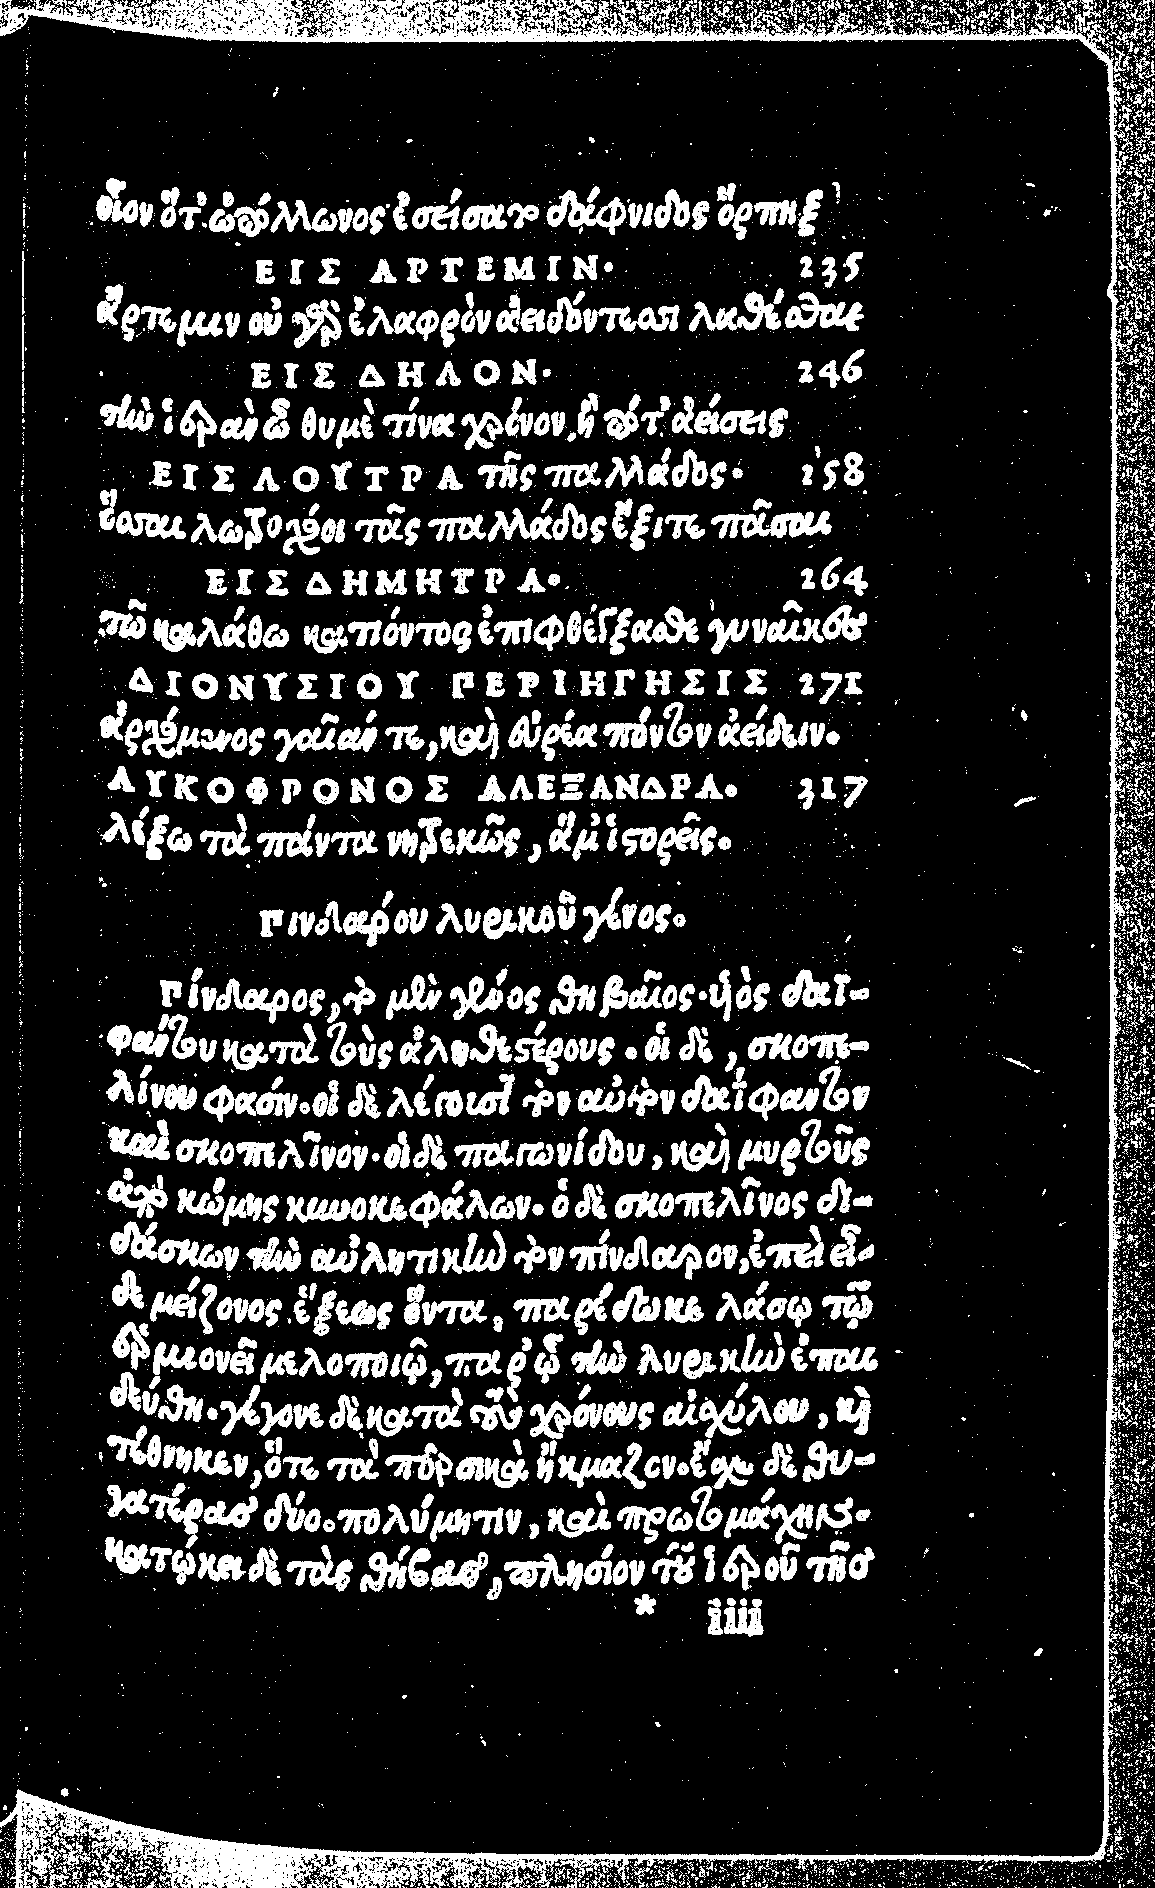 οἷον ὅτ' ὡπόλλωνος ἐσείσατο δάφνιδος ὅρπηξ
ΕΙΣ ΑΡΤΕΜΙΝ. 235
ἄρτεμιν οὐ γὰρ ἐλαφρὸν ἀειδόντεσσι λαθέσθαι
ΕΙΣ ΔΗΛΟΝ. 246
τὴν ἱερὰν ὦ θυμὲ τίνα χρόνον, ἢ πότ' ἀείσεις
ΕΙΣ ΛΟΥΤΡΑ τῆς παλλάδος. 258
ὅσσαι λωτροχόοι τᾶς παλλάδος ἔξιτε πᾶσαι
ΕΙΣ ΔΗΜΗΤΡΑ. 264
τῶ καλάθω κατιόντος ἐπιφθέγξασθε γυναῖκες
ΔΙΟΝΥΣΙΟΥ ΠΕΡΙΗΓΗΣΙΣ 271
ἀρχόμενος γαῖαν τε, καὶ εὐρέα πόντον ἀείδειν.
ΛΥΚΟΦΡΟΝΟΣ ΑΛΕΞΑΝΔΡΑ. 317
λέξω τὰ πάντα νητρεκῶς, ἅμ' ἱστορεῖς.
Πινδάρου λυρικοῦ γένος.
Πίνδαρος, τὸ μὲν γένος θηβαῖος. υἱὸς δαϊ-
φάντου κατὰ τοὺς ἀληθεστέρους. οἱ δὲ, σκοπε-
λίνου φασίν. οἱ δὲ λέγουσι τὸν αὐτὸν δαΐφαντον
καὶ σκοπελῖνον. οἱ δὲ παγωνίδου, καὶ μυρτοῦς
ἀπὸ κώμης κυνοκεφάλων. ὁ δὲ σκοπελῖνος δι-
δάσκων τὴν αὐλητικὴν τὸν πίνδαρον, ἐπεὶ εἶ-
δε μείζονος ἕξεως ὄντα, παρέδωκε λάσῳ τῷ
ἑρμιονεῖ μελοποιῷ, παρ' ᾧ τὴν λυρικὴν ἐπαι
δεύθη. γέγονε δὲ κατὰ τοὺς χρόνους αἰσχύλου, καὶ
τέθνηκεν, ὅτε τὰ περσικὰ ἤκμαζον. ἔσχε δὲ θυ-
γατέρας δύο. πολύμητιν, καὶ πρωτομάχην.
κατῴκει δὲ τὰς θήβας, πλησίον τοῦ ἱεροῦ τῆς
* iiii